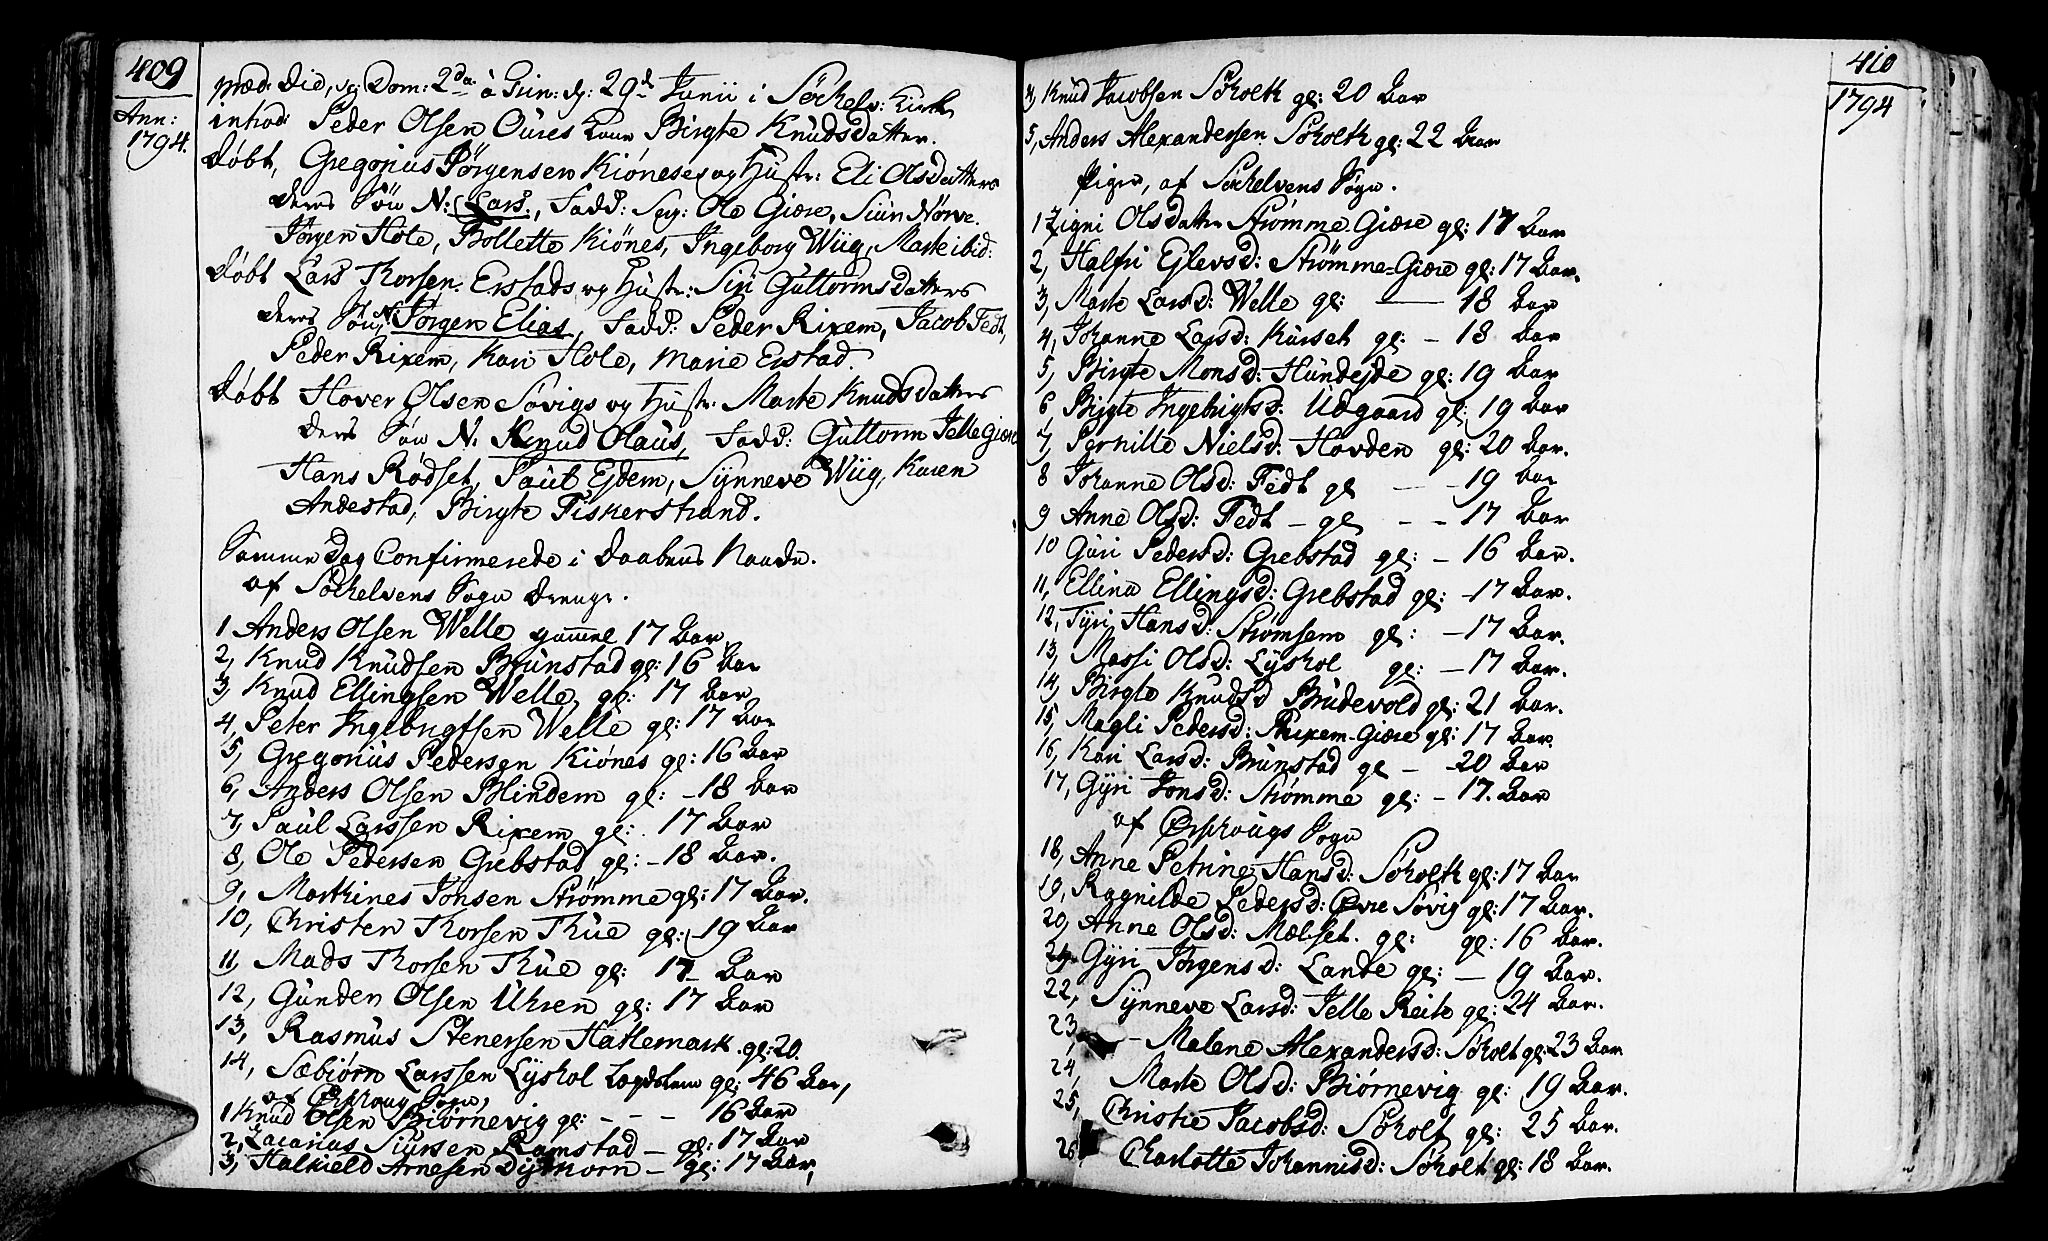 409
Ann:
1794.
Præd. Did, sc: Dom: 2da à Trin: d: 29d Junii i Söchels: Kirke
introd: Peder Olsen Oüres Kone Birgte Knüdsdatter.
Døbt, Gregorius Jörgensen Kiönes og Hustr: Eli Olsdatters
deres Søn N: Lars, Fadd: Ole Giære, Siur Nörve.
Jörgen Hole, Bollette Kiönes, Ingeborg Wiig, Marte ibid:
Døbt Lars Thorsen Erstads og Hustr: Siri Guttormsdatters
deres Søn N: Jörgen Elias, Fadd: Peder Rixem, Jacob Fedt,
Peder Rixem, Kari Hole, Marie Erstad.
Døbt Hover Olsen Søvigs og Hustr: Marte Knudsdatters
deres Søn N: Knud Olaus, Fadd: Güttorm Jelle Giære
Hans Rödset, Paül Ejdem, Sÿnneve Wiig, Karen
Andestad, Birgte Fiskerstrand.
Samme Dag Confirmerede i Daabens Naade.
af Söchelvens Sogn Drenge.
1 Anders Olsen Welle gammel 17 Aar
2, Knud Knüdsen Brünstad gl: 16 Aar
3, Knud Ellingsen Welle gl: 17 Aar
4, Peter Ingebrigtsen Welle gl: 17 Aar
5, Gregoriüs Pedersen Kiönes gl: 16 Aar
6, Anders Olsen Blindem gl: - 18 Aar
7, Paül Larssen Rixem gl: 17 Aar
8, Ole Pedersen Grebstad gl: - 18 Aar.
9, Marthines Jonsen Strömme gl: 17 Aar.
10, Christen Thorsen Thüe gl: 19 Aar
11, Mads Thorsen Thüe gl: 17 Aar
12, Günder Olsen Uhren gl: 17 Aar
13, Rasmüs Stenersen Hatlemark gl: 20.
14, Sæbiörn Larssen Lÿshol Lægdslem gl: 46 Aar,
af Ørschoug Sogn,
1 Knüd Olsen Biörnevig gl: - - - 16 Aar
2, Zacarias Siursen Ramstad - gl: 17 Aar
3, Halkield Arnesen Dÿrkorn - gl: 17 Aar,
410
1794
4, Knüd Jacobsen Søholt gl: 20 Aar
5, Anders Alexandersen Søholt gl: 22 Aar
Piger, af Söchelvens Sogn.
1 Zigni Olsdatter Strømme Giære gl: 17 Aar
2, Halfri Ejlevsd: Strömme-Giære gl: 17 Aar.
3, Marte Larsd: Welle gl: — 18 Aar
4, Johanne Larsd: Kürset gl: - 18 Aar
5, Birgte Monsd: Hündejde gl: 19 Aar
6, Birgte Ingebrigtsd: Üdgaard gl: 19 Aar
7, Pernille Nielsd: Hovden gl: 20 Aar.
8 Johanne Olsd: Fedt gl - - 19 Aar
9 Anne Olsd: Fedt - gl - - 17 Aar
10 Güri Pedersd: Grebstad gl: - 16 Aar.
11, Ellina Ellingsd: Grebstad gl: - 17 Aar.
12, Tÿri Hansd: Strømsem gl: - 17 Aar.
13, Massi Olsd: Lÿshol gl: - 17 Aar.
14, Birgte Knudsd Brüdevold gl: 21 Aar.
15, Magli Pedersd: Rixem-Giære gl: 17 Aar
16, Kari Larsd: Brünstad gl - 20 Aar
17, Gÿri Jonsd: Strømme gl: - 17. Aar
af Ørschougs Sogn
18, Anne Petrine Hansd: Søholt gl: 17 Aar
19, Ragnilde Pedersd: Øvre Søvig gl: 17 Aar.
20, Anne Olsd: Mælset. gl: gl: 16 Aar.
21, Gÿri Jörgensd: Lande gl: - 19 Aar.
22, Sÿnneve Larsd: Jelle Reite gl: 24 Aar.
23, - Malene Alexandersd: Søholt gl: 23 Aar
24, Marte Olsd: Biørnevig gl: 19 Aar.
25, Christie Jacobsd: Søholt gl: 25 Aar.
26 Charlotte Johannisd: Søholt gl: 18 Aar.